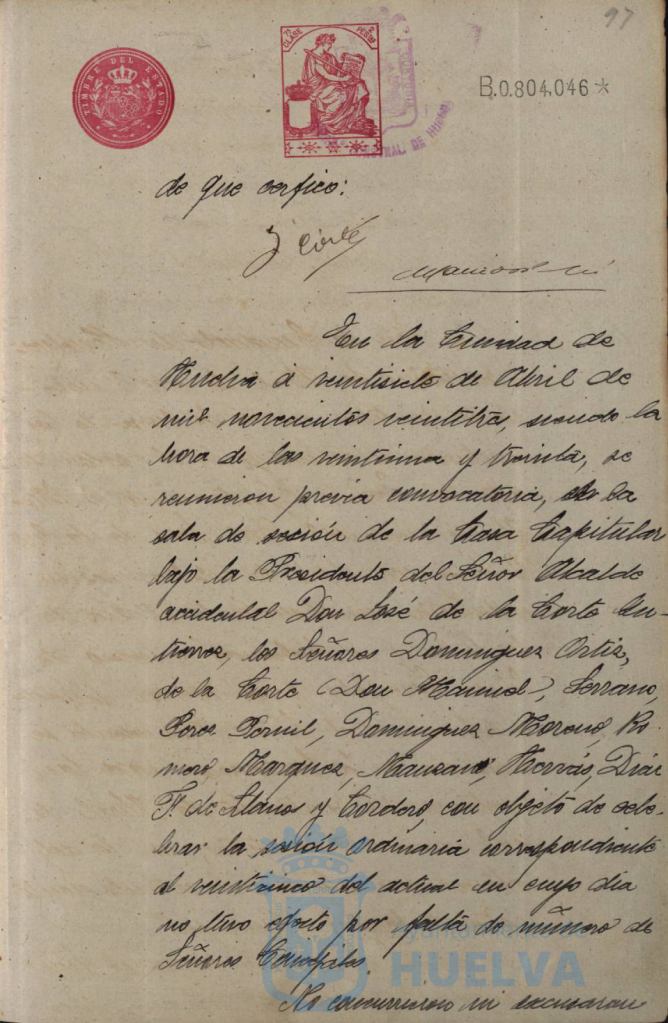 97
TIMBRE DEL ESTADO
CLASE
B.0.804.046*
de que certifico:
J Corte
En la Ciudad de
Huelva á veintisiete de Abril de
mil novecientos veintitres, siendo la
hora de las veintiuna y treinta, se
reunieron previa convocatoria, en la
sala de sesión de la Casa Capitular
bajo la Presidencia del Señor Alcalde
accidental Don José de la Corte Gu-
tierrez, los Señores Dominguez Ortiz,
de la Corte (Don Manuel), Serrano,
Perez Pornil, Dominguez Moreno, Ro
mero, Marquez, Manzano, Hervás, Diaz
F. de Llanos y Cordero, con objeto de cele-
brar la sesión ordinaria correspondiente
al veinticinco del actual en cuyo dia
no tuvo efecto por falta de número de
Señores Concejales.
No concurrieron ni excusaron
HUELVA